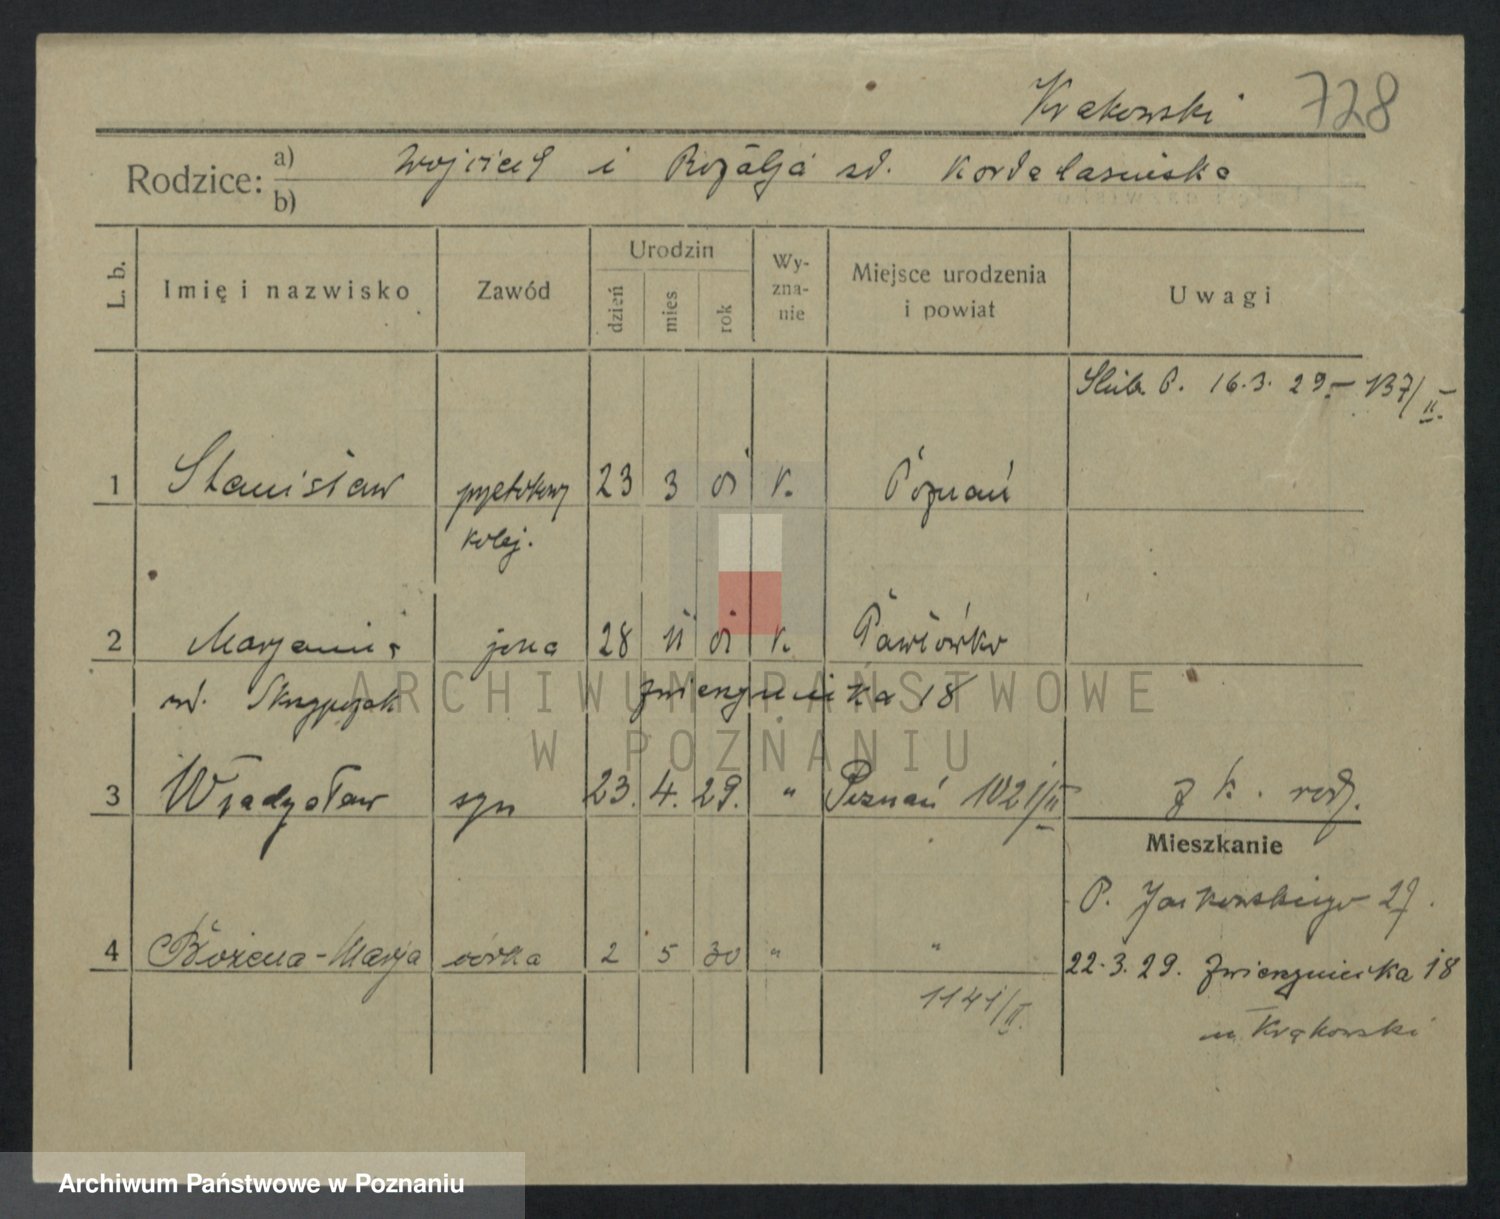 Krakowski 728
Rodzice: a) Wojciech i Rozalja zd.
b)
L. b.
Imię i nazwisko
Zawód
Urodzin
dzień
mies
rok
Wy-
zna-
nie
Miejsce urodzenia
i powiat
Uwagi
Ślub P. 16.3. 29.– 137/II.
1 Stanisław 23 3 05 r. Poznań
kolej.
2 Marjanna żona 28 11 05 r. Pawłówko
zd. Skrzypczak Zwierzyniecka 18
3 Władysław syn 23. 4. 29. " Poznań 1021/II z k. rodz.
Mieszkanie
P. Jackowskiego 27.
4 Bożena-Marja córka 2 5 30 " "
22.3.29. Zwierzyniecka 18
1141/II.
u Krakowski
ARCHIWUM PAŃSTWOWE
W POZNANIU
Archiwum Państwowe w Poznaniu